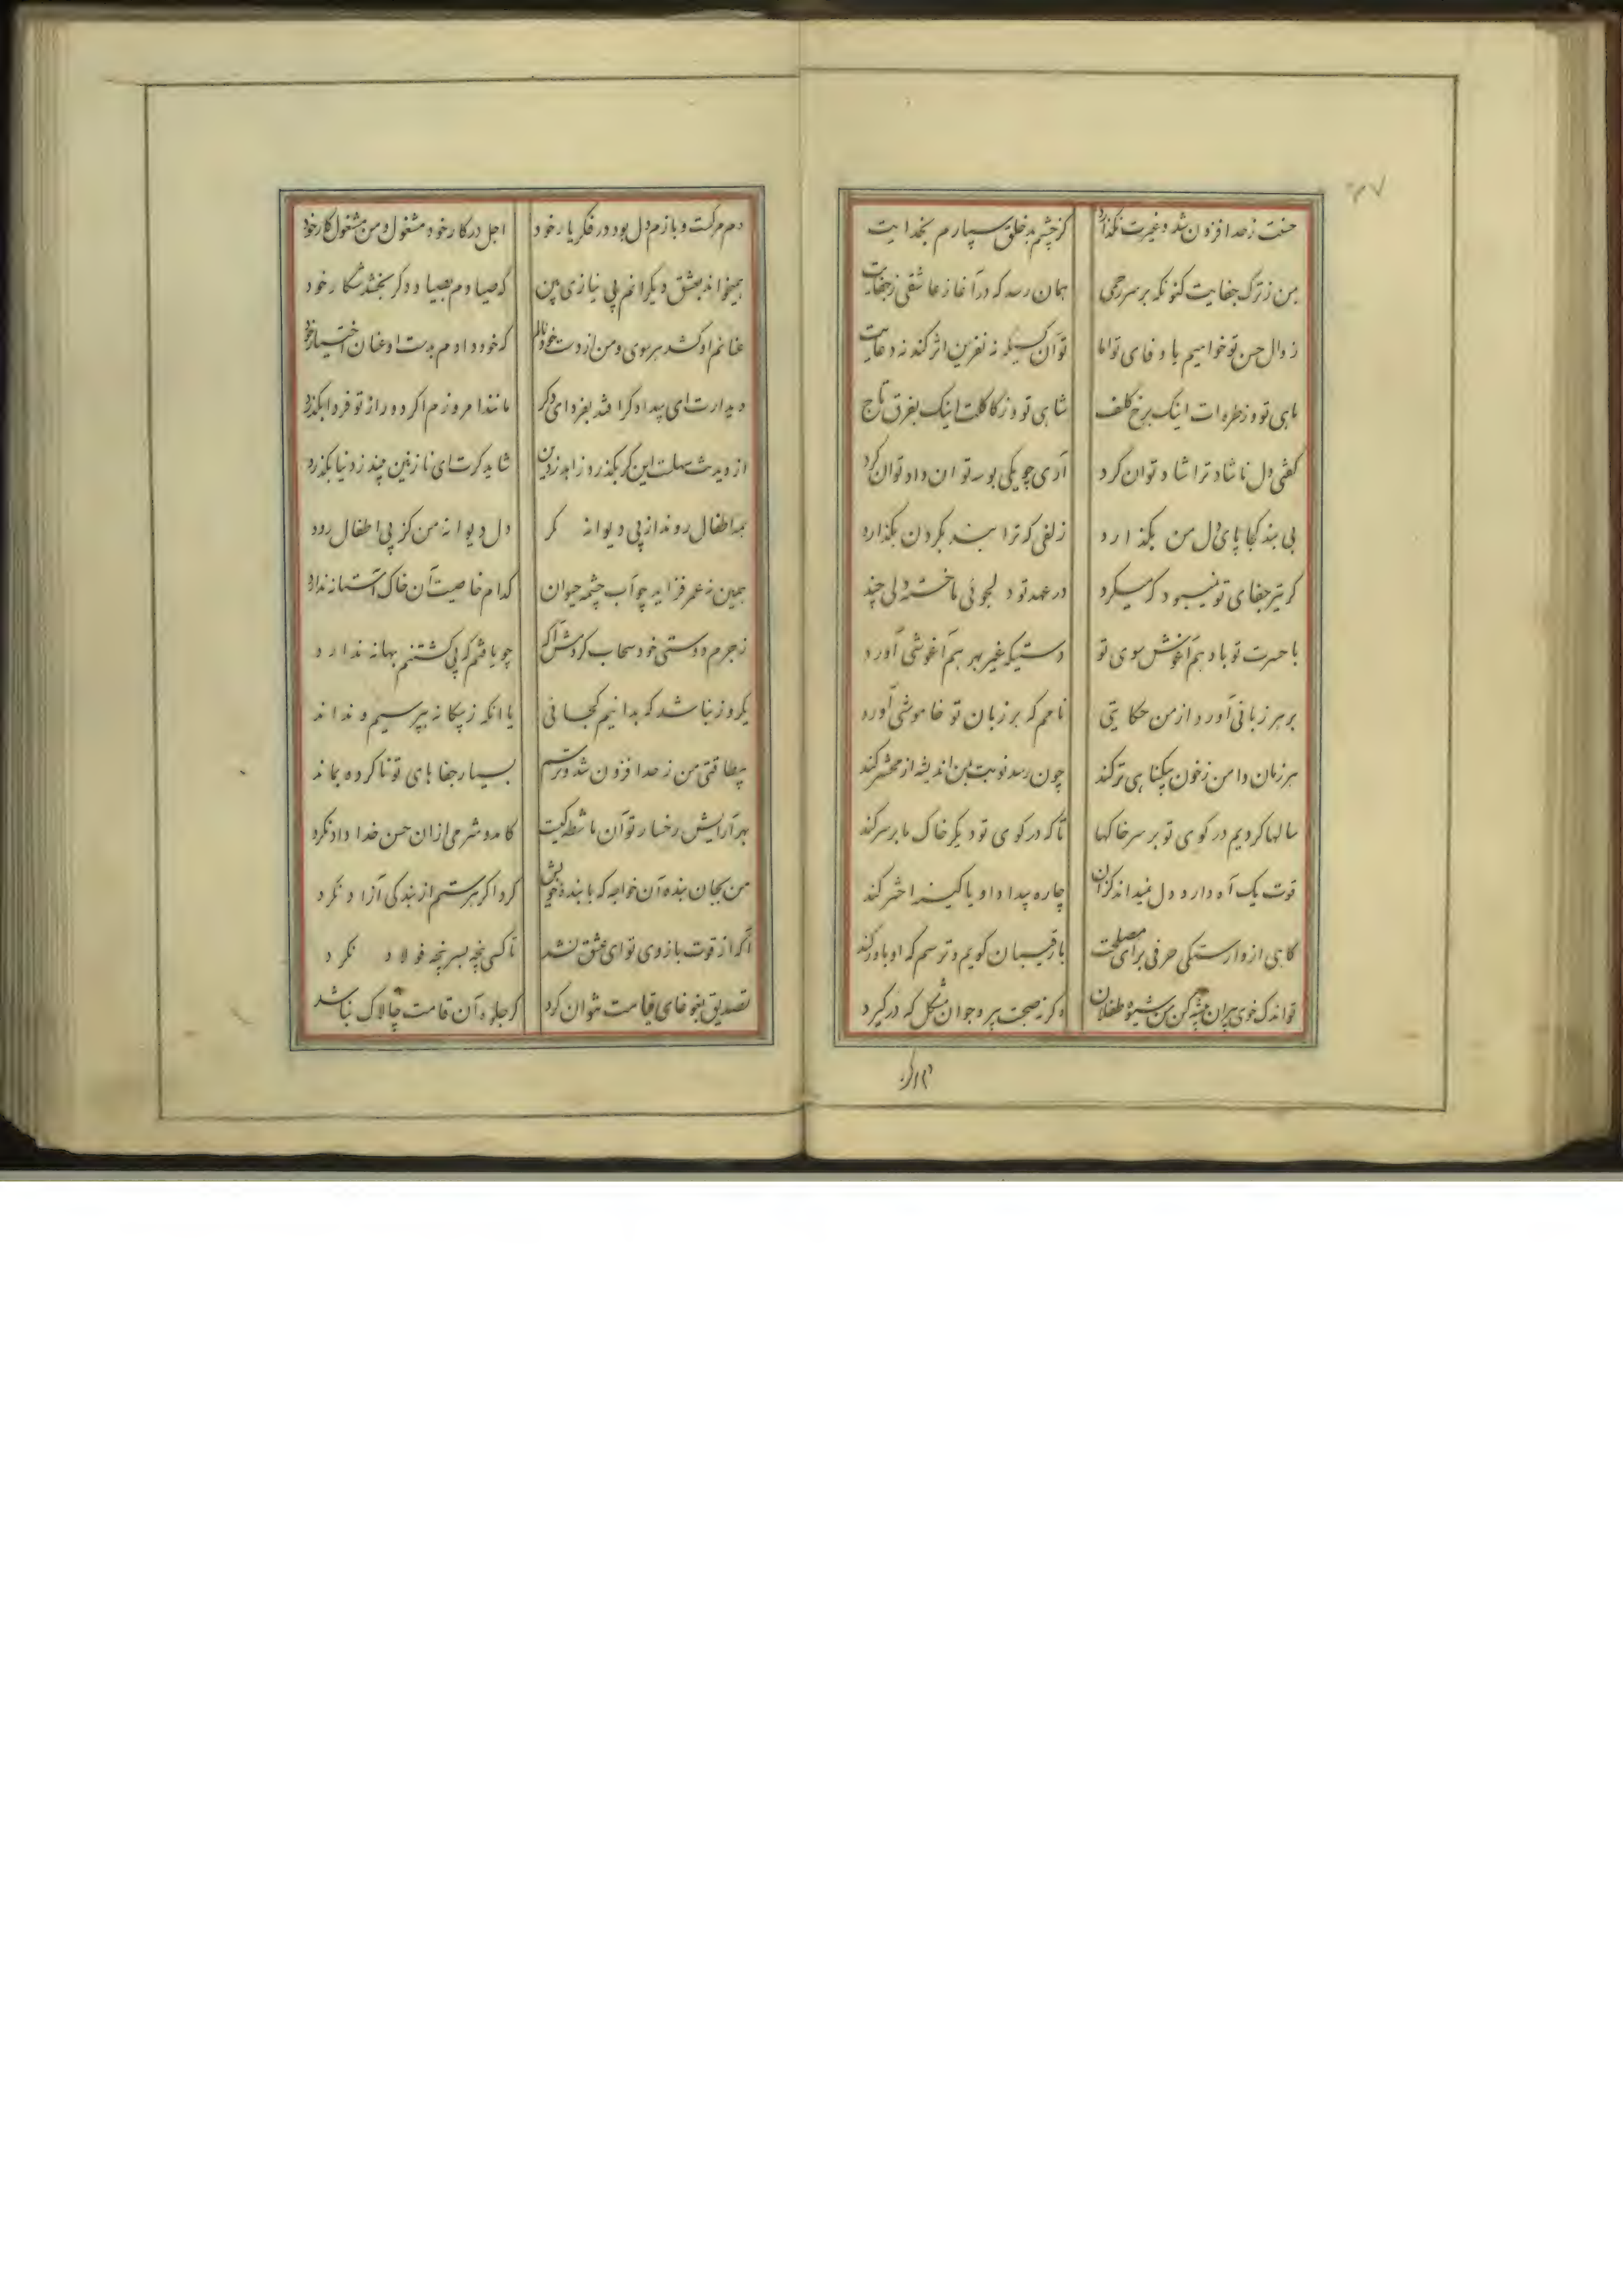 ۳۷
حسنت ز حد افزون شد و غیرت نگذارد کز چشم بد خلق سپارم بخدایت
بمن ز ترک جفایت کنونکه بر سر رحمی همان رسد که در آغاز عاشقی ز جفایت
زوال حسن تو خواهیم یا وفای تو اما توآن کسیکه نه نفرین اثر کند نه دعایت
ماهی تو و ز طره ات اینک برخ کلف شاهی تو و ز کاکلت اینک بفرق تاج
کفتی دل ناشاد ترا شاد توان کرد آری چو بیکی بوسه توان داد توان کرد
بی بند کجا پای دل من بگذارد زلفی که ترا بند بگردن بگذارد
گر تیر جفای تو نمیبود که میکرد در عهد تو دلجوئی ما خسته دلی چند
با حسرت تو باد هم آغوش سوی تو دستیکه غیر بهر هم آغوشی آورد
بر هر زبانی آورد از من حکایتی نامم که بر زبان تو خاموشی آورد
هر زمان دامن ز خون بیکناهی تر کند چون رسد نوبت بمن اندیشه از محشر کند
سالها کردیم در کوی تو بر سر خاکها تا که در کوی تو دیگر خاک ما بر سر کند
قوت یک آه دارد دل نمیداند کزان چاره بیداد او یا کینه اختر کند
کاهی از وارستکی حرفی برای مصلحت با رقیبان گویم و ترسم که او باور کند
تو اندک خوی پیران پیشه کن من شیوه طفلان و گرنه صحبت پیر و جوان مشکل که درگیرد
دم مرکست و بازم دل بود در فکر یار خود اجل در کار خود مشغول و من مشغول کار خود
بمیخواند بعشق دیگرانم بی نیازی بین که صیادم بصیاد دگر بخشد شکار خود
عنانم او کشد هر سوی و من از دست خود نالم که خود دادم بدست او عنان اختیار خود
دیدارت ای بیدادگر افتد بفردای دگر مانند امروزم اگر دور از تو فردا بگذرد
از دیدنت سهلست این گر بگذرد زاهد ز دین شاید گرت ای نازنین بیند ز دنیا بگذرد
همه اطفال روند از پی دیوانه مگر دل دیوانه من کز پی اطفال رود
همین نه عمر فزاید چو آب چشمه حیوان کدام خاصیت آن خاک آستانه ندارد
ز جرم دوستی خود سحاب کردمش آکه چو یافتم که پی کشتنم بهانه ندارد
یکروز نباشد که بدانیم کجائی یا آنکه ز بیکانه بپرسیم و نداند
بیطاقتی من ز حد افزون شد و ترسم بسیار جفاهای تو ناکرده بماند
بهر آرایش رخسار تو آن ماشطه کیست کامد و شرمی از ان حسن خدا داد نکرد
من بجان بنده آن خواجه که با بنده خویش کرد اگر هر ستم از بندگی آزاد نکرد
آکه از قوت بازوی تو ای عشق نشد تا کسی پنجه بسر پنجه فولاد نکرد
تصدیق بغوغای قیامت نتوان کرد گر جلوه آن قامت چالاک نباشد